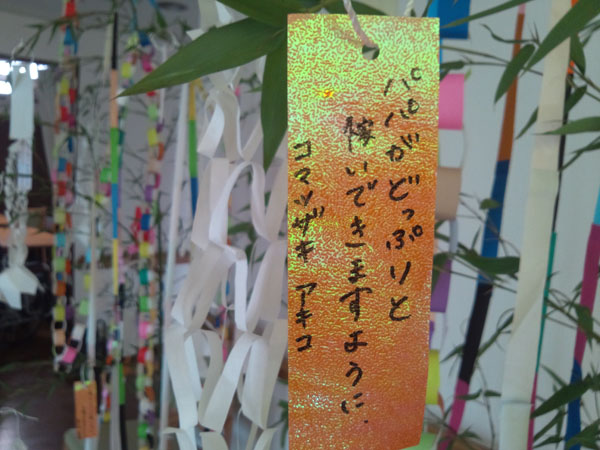 パパがどっぷりと
稼いできますように.
コマツザキ アキコ